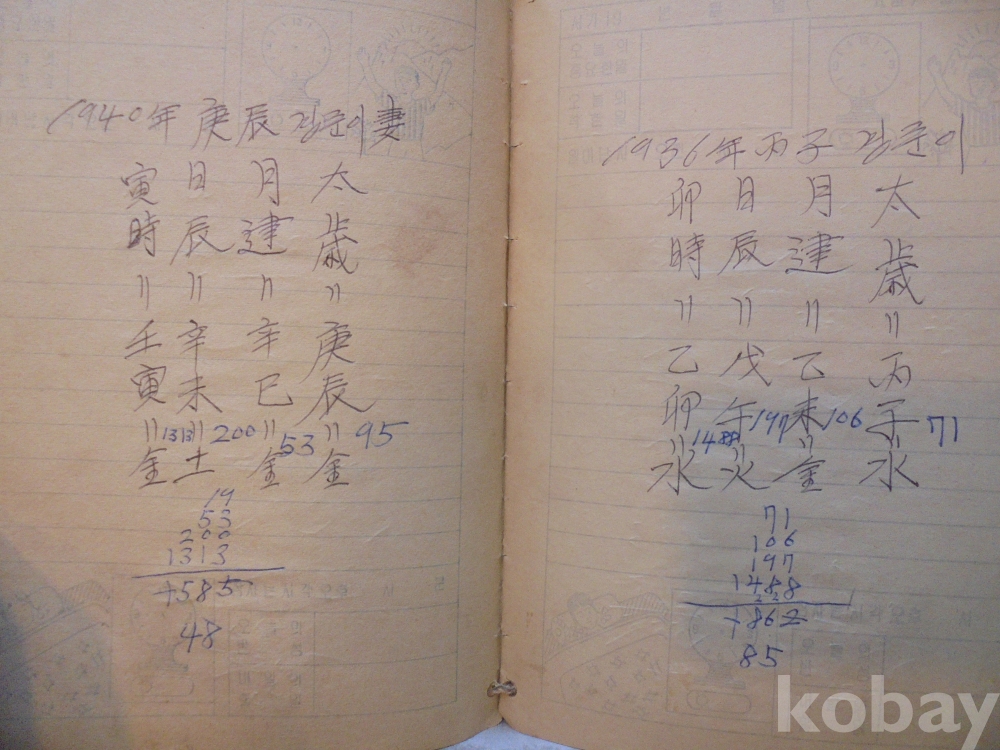 1940年 庚辰 김준이妻
太歲〃庚辰〃金
95
月建〃辛巳〃金
53
日辰〃辛未〃土
200
寅時〃壬寅〃金
1313
19
53
200
1313
1585
48
1936年 丙子 김준이
太歲〃丙子〃水
71
月建〃乙未〃金
106
日辰〃戊午〃火
197
卯時〃乙卯〃水
1488
71
106
197
1488
1862
85
kobay